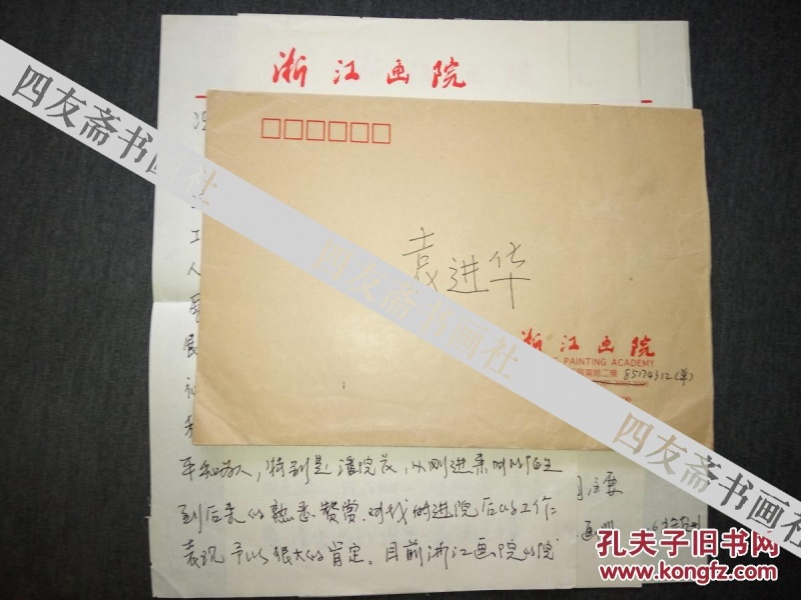 浙江画院
袁进华
浙江画院
PAINTING ACADEMY
85174312(单)
工
人
展
展
平和为人，特别是潘院长，从刚进来时的陌生
到后来的熟悉赞赏，对我的进院后的工作
表现予以很大的肯定。目前浙江画院的院
主要
画
四友斋书画社
四友斋书画社
四友斋书画社
孔夫子旧书网
www.kongfz.com